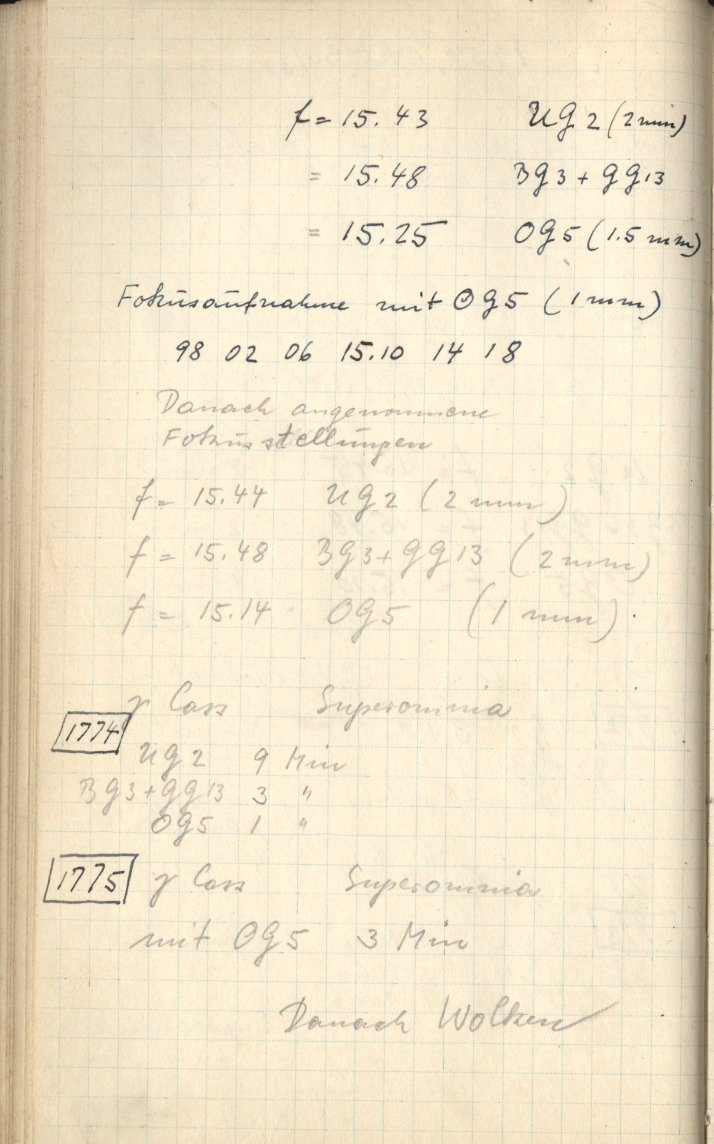 f = 15.43 UG2 (2 mm)
= 15.48 BG3 + GG13
= 15.25 OG5 (1.5 mm)
Fokusaufnahme mit OG5 (1 mm)
98 02 06 15.10 14 18
Danach angenommene
Fokusstellungen
f = 15.44 UG2 (2 mm)
f = 15.48 BG3 + GG13 (2 mm)
f = 15.14 OG5 (1 mm)
γ Cass Superomnia
1774
UG2 9 Min
BG3 + GG13 3 "
OG5 1 "
1775 γ Cass Superomnia
mit OG5 3 Min
Danach Wolken